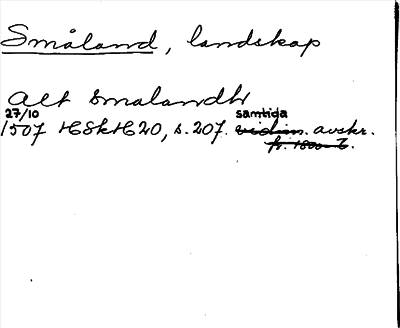 Småland, landskap
Alt Smalandh
27/10 samtida
1507 HSkH 20, s. 207. vidim. avskr.
fr. 1800-t.